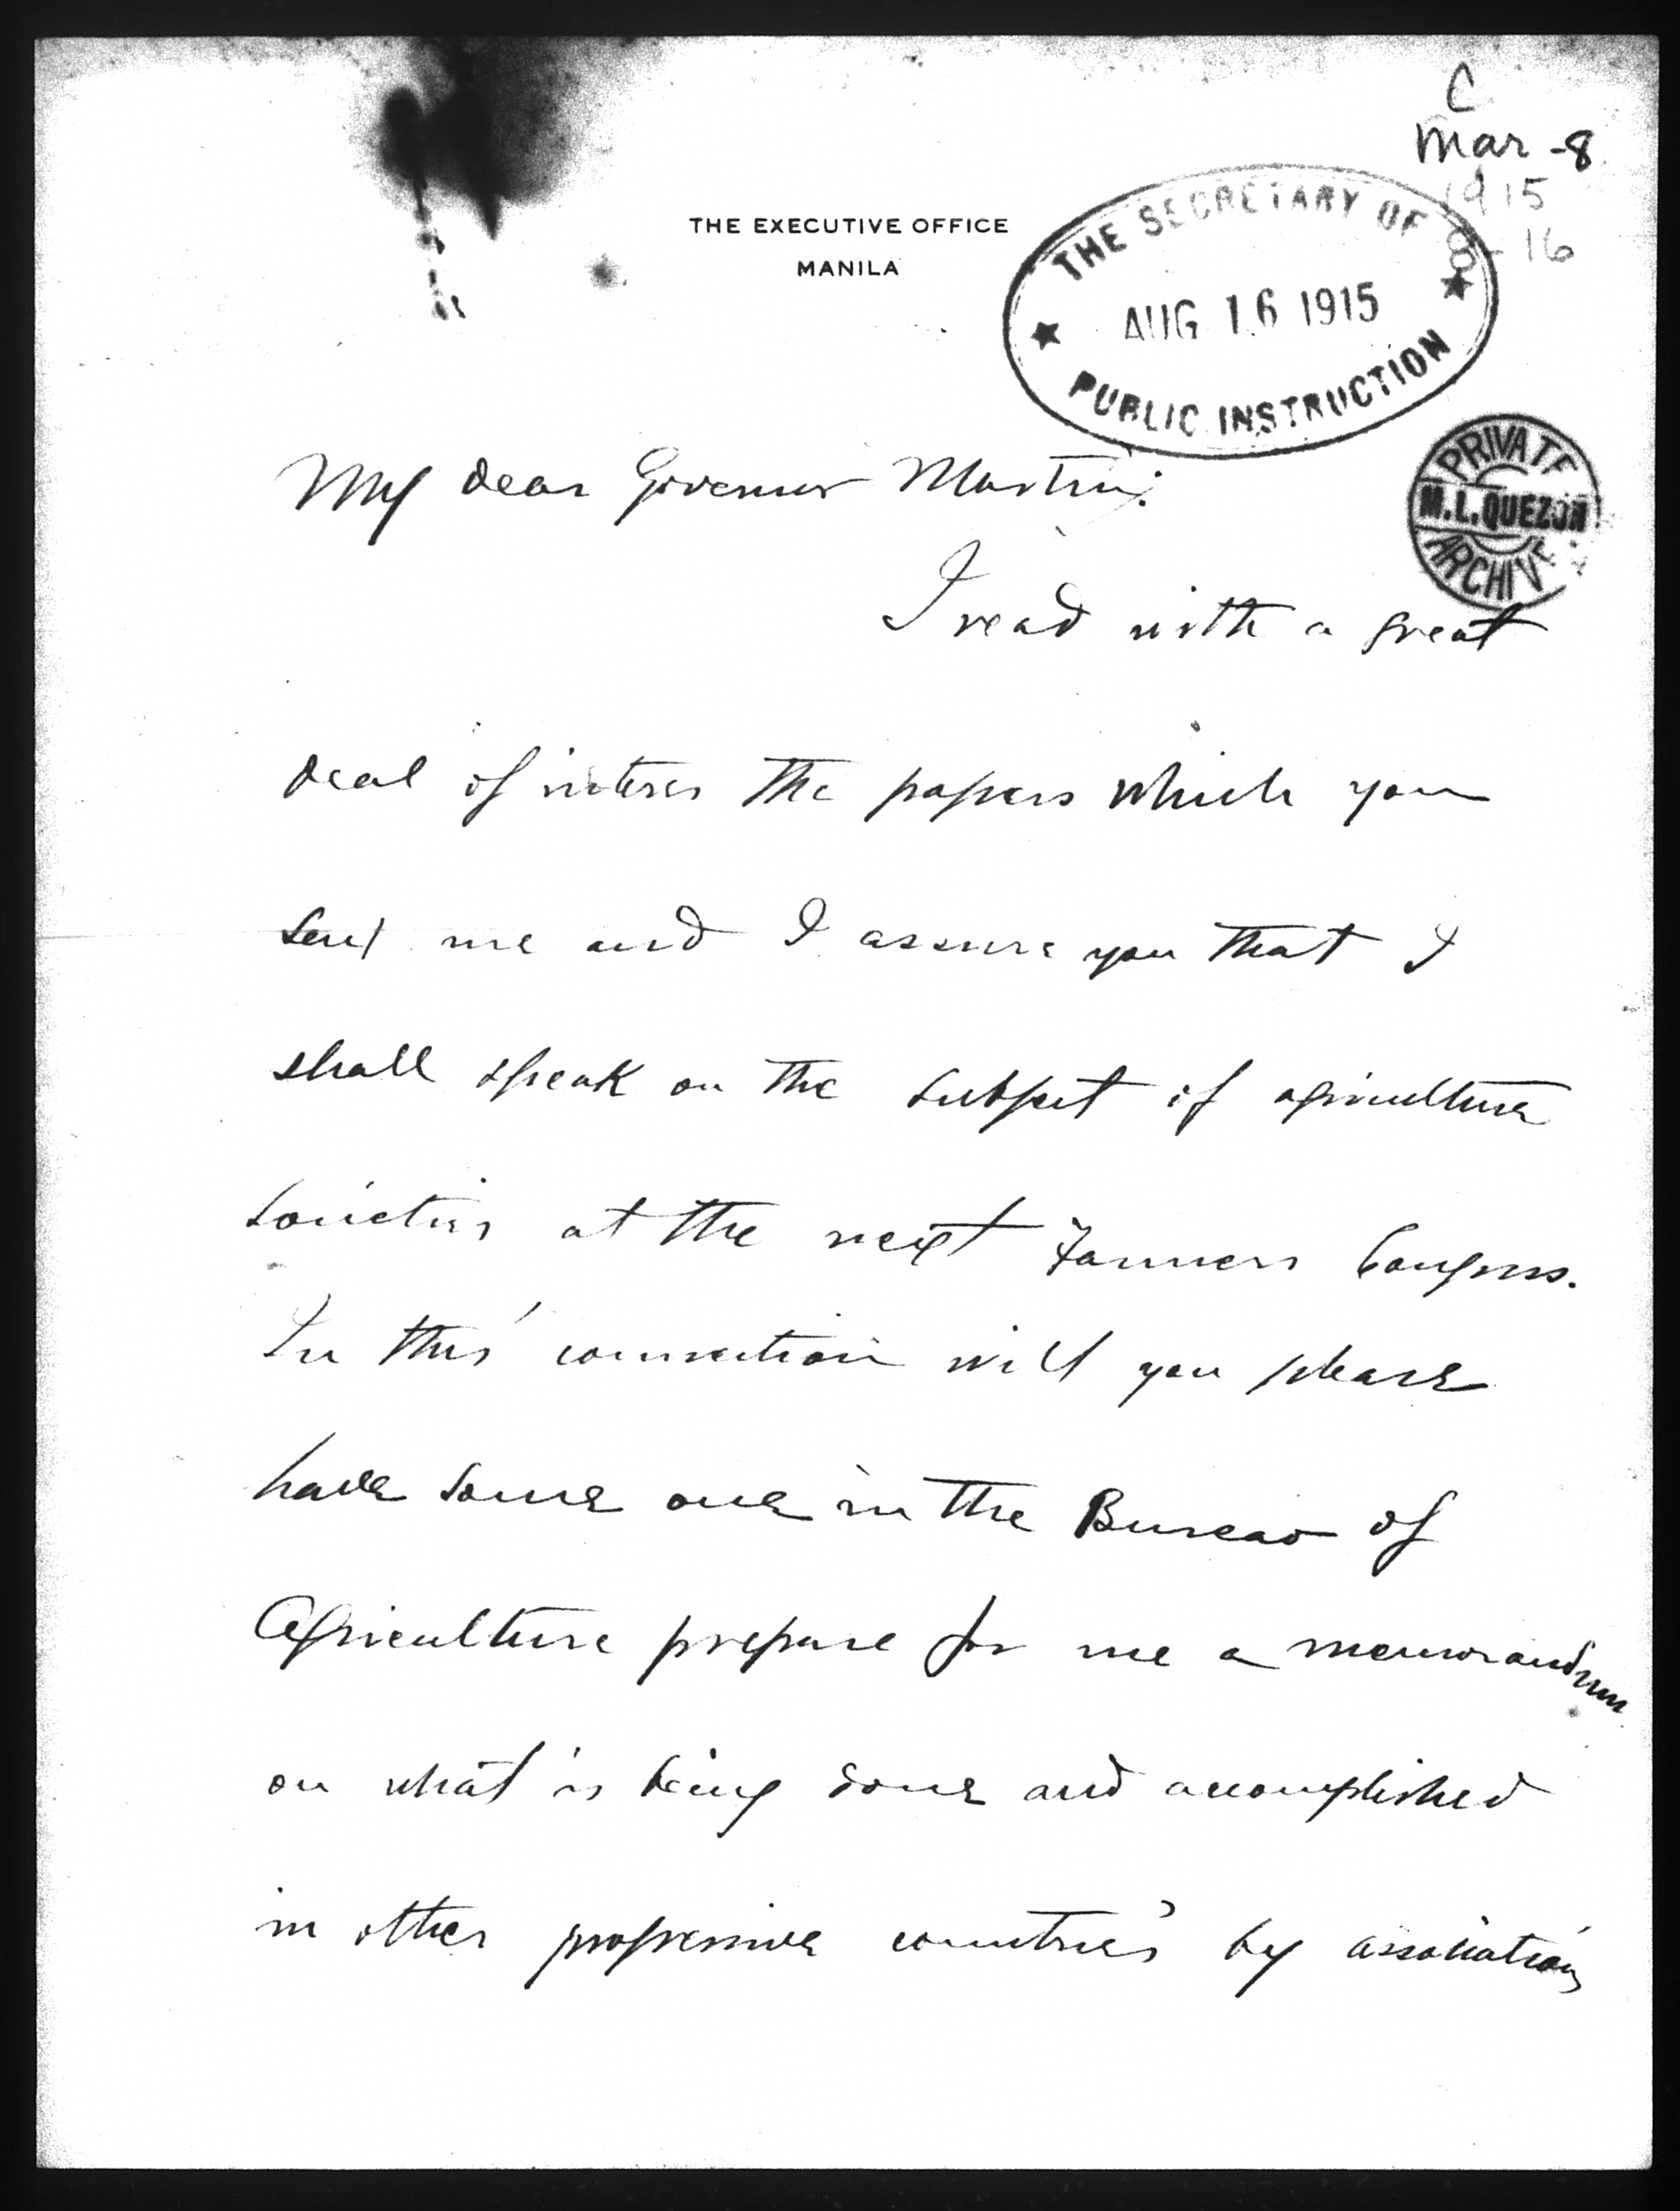 C
Mar -8
1915
8 - 16
THE EXECUTIVE OFFICE
MANILA
THE SECRETARY OF
AUG 16 1915
PUBLIC INSTRUCTION
PRIVATE
M.L.QUEZON
ARCHIVE
My dear Governor Martin:
I read with a great
deal of interes the papers which you
sent me and I assure you that I
shall speak on the subject of agriculture
societies at the next Farmers Congress.
In this connection will you please
have some one in the Bureau of
Agriculture prepare for me a memorandum
on what is being done and accomplished
in other progressive countries by associations